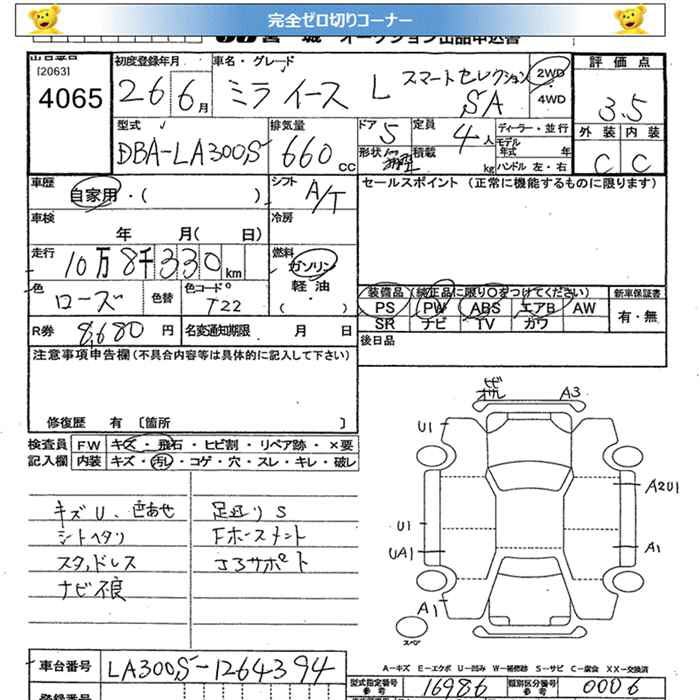 完全ゼロ切りコーナー
宮城 オークション出品申込書
出品番号
[2063]
4065
初度登録年月
26年6月
車名・グレード
ミライース L スマートセレクション SA
2WD
4WD
評価点
3.5
外装 内装
C C
型式
DBA-LA300S
排気量
660 CC
ドア 5
形状
定員 4人
積載 kg
ディーラー・並行
モデル年式 年
ハンドル 左・右
車歴
自家用・( )
シフト
A/T
セールスポイント (正常に機能するものに限ります)
車検
年 月( 日)
冷房
走行
10万8千330km
燃料
ガソリン
軽油
( )
色
ローズ
色替
色コード
T22
装備品 (純正品に限り○をつけてください)
PS PW ABS エアB AW
SR ナビ TV カワ
新車保証書
有・無
R券 8,680円
名変通知期限 月 日
後日品
注意事項申告欄(不具合内容等は具体的に記入して下さい)
修復歴 有 〔箇所 〕
検査員記入欄
FW キズ・飛石・ヒビ割・リペア跡・×要
内装 キズ・汚レ・コゲ・穴・スレ・キレ・破レ
キズU、色あせ
シートヘタリ
スタッドレス
ナビ不良
足廻りS
Fホースメント
コアサポート
A3
U1
A2U1
U1
UA1
A1
A1
スペア
A-キズ E-エクボ U-凹み W-補修跡 S-サビ C-腐食 XX-交換済
車台番号
LA300S-1264394
型式指定番号
参考
16986
類別区分番号
参考
0006
登録番号